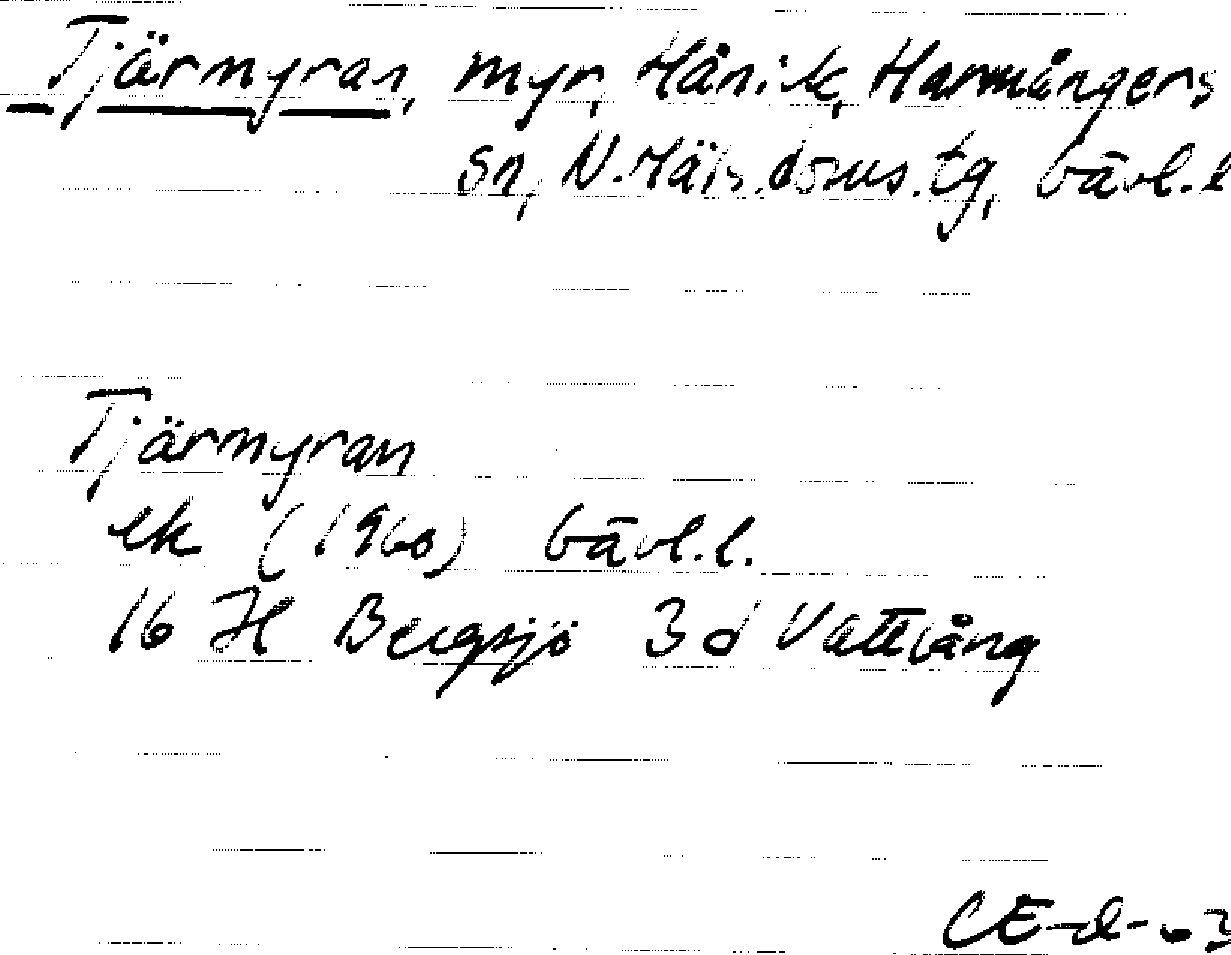 Tjärmyran, myr, Hånick, Harmångers
sn, N. Häls. doms. tg, Gävl. l
Tjärmyran
ek (1960) Gävl. l.
16 H Bergsjö 3 d Vattlång